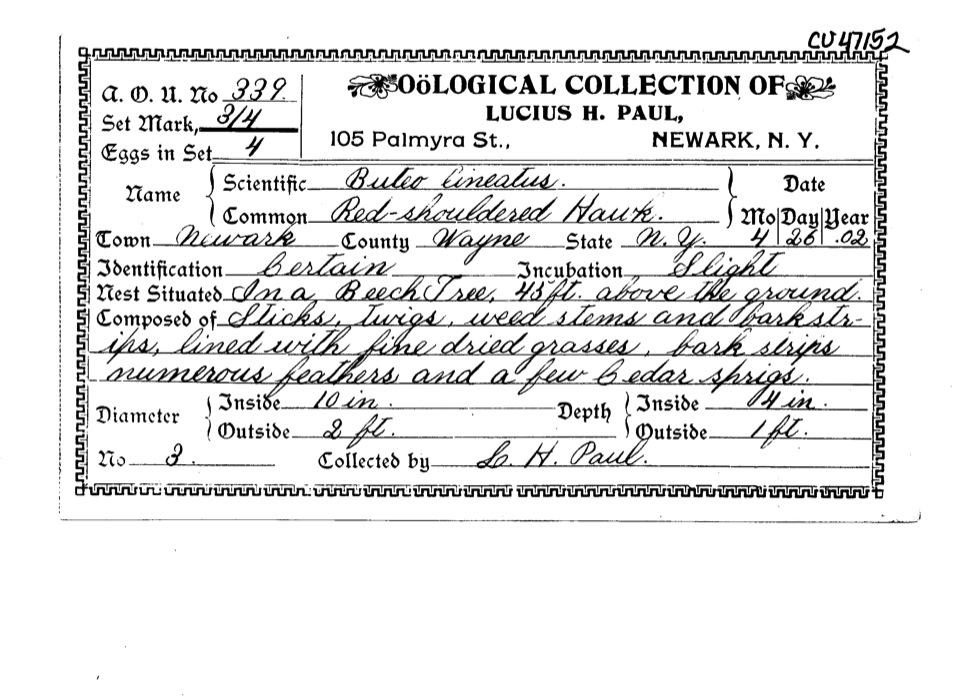 CU47152
A. O. U. No 339.
OöLOGICAL COLLECTION OF
Set Mark, 3/4
LUCIUS H. PAUL,
Eggs in Set 4
105 Palmyra St., NEWARK, N. Y.
Name { Scientific Buteo lineatus. } Date
Common Red-shouldered Hawk. Mo Day Year
Town Newark County Wayne State N.Y. 4 26 .02
Identification Certain Incubation Slight
Nest Situated In a Beech Tree, 45 ft. above the ground.
Composed of Sticks, twigs, weed stems and bark str-
ips, lined with fine dried grasses, bark strips
numerous feathers and a few Cedar sprigs.
Diameter { Inside 10 in. Depth { Inside 4 in.
Outside 2 ft. Outside 1 ft.
No 3. Collected by L. H. Paul.